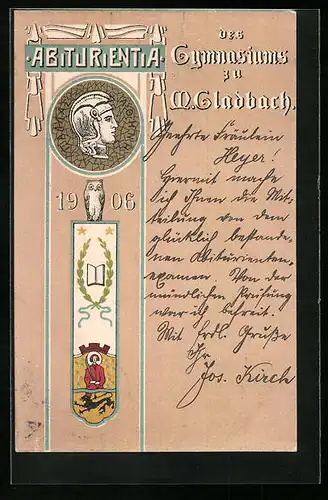 ABITURIENTIA
des
Gymnasiums
zu
M. Gladbach.
1906
Geehrte Fräulein
Heyer!
Hiermit mache
ich Ihnen die Mit-
teilung von dem
glücklich bestande-
nen Abiturienten-
examen. Von der
mündlichen Prüfung
war ich befreit.
Mit frdl. Gruße
Ihr
Jos. Kirch